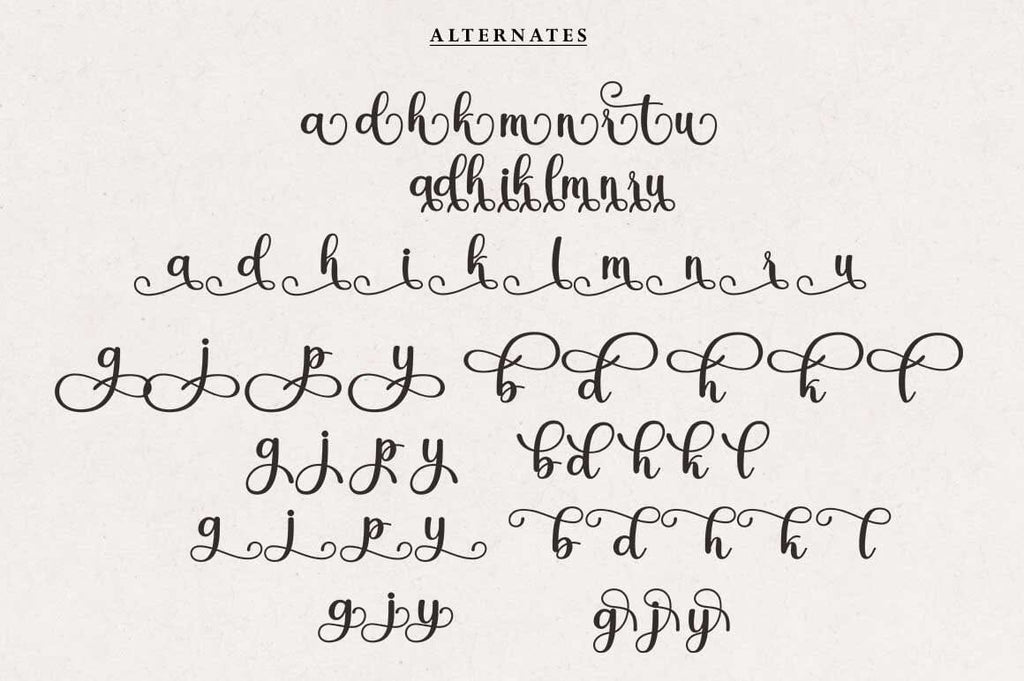 ALTERNATES
a d h k m n r t u
a d h i k l m n r u
a d h i k l m n r u
g j p y b d h k l
g j p y b d h k l
g j p y b d h k l
g j y g j y